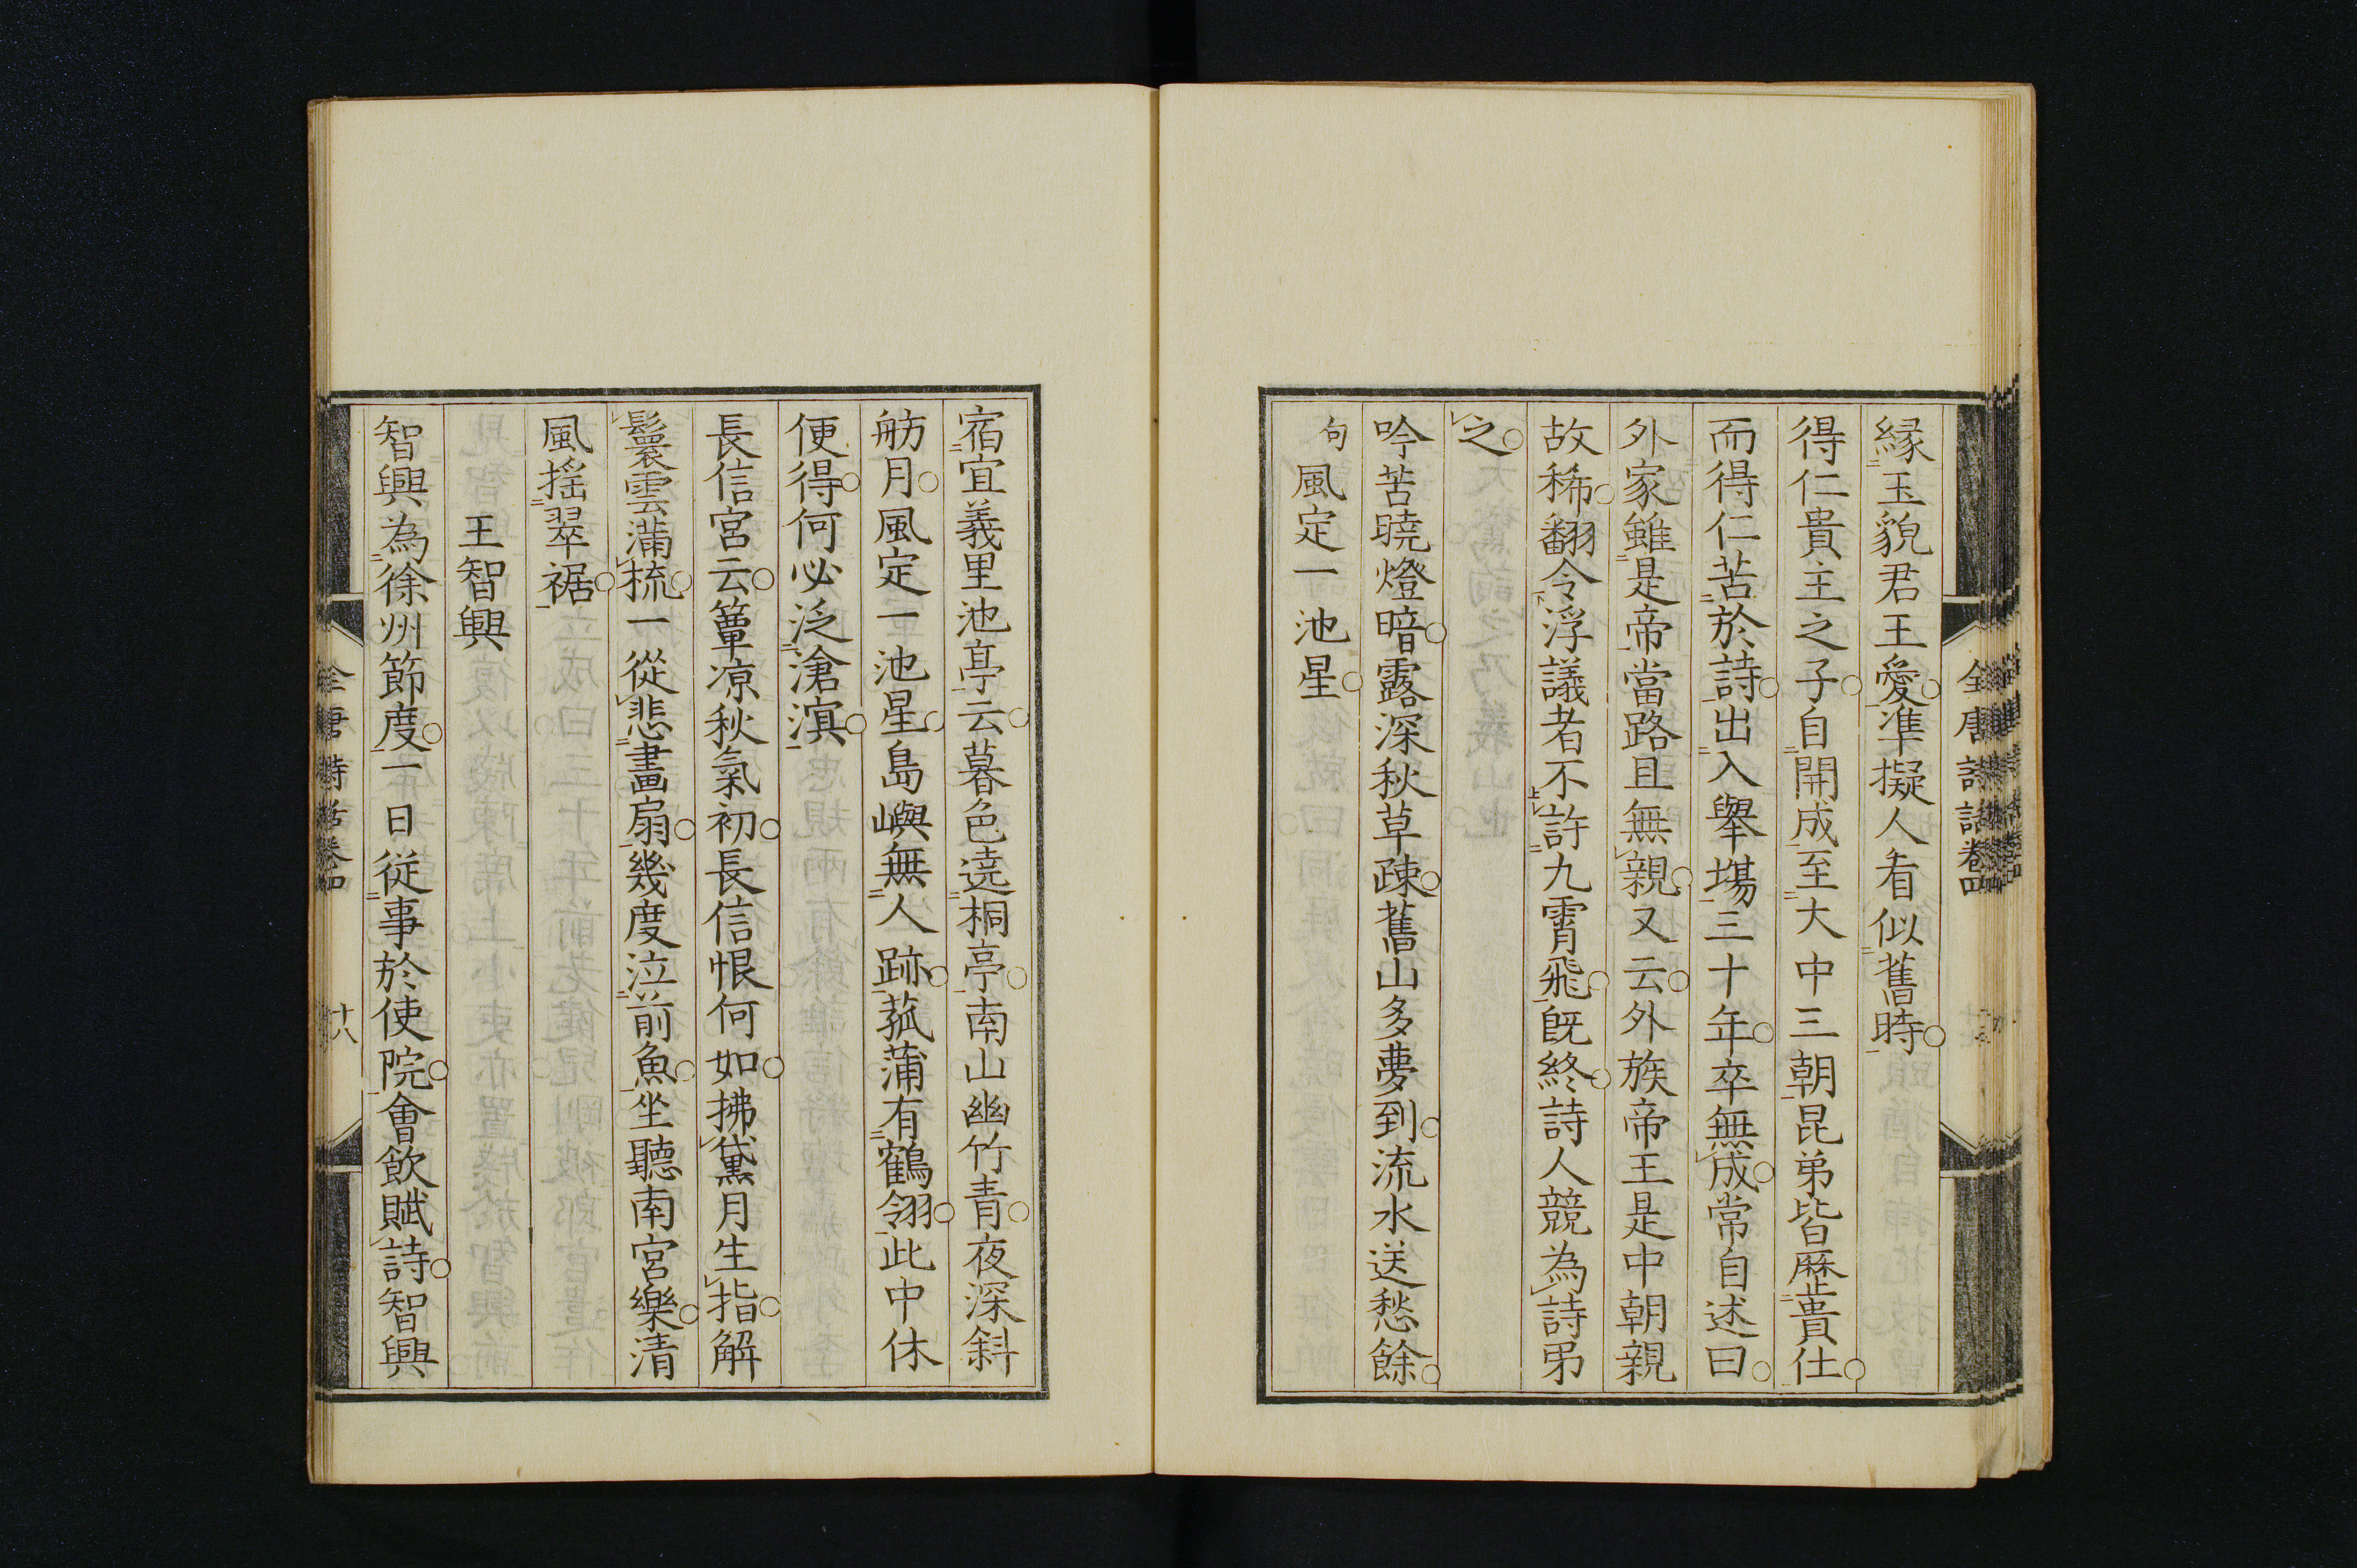 縁玉貌君王愛準擬人看似舊時
得仁貴主之子自開成至大中三朝昆弟皆歷貴仕
而得仁苦於詩出入舉場三十年卒無成常自述曰
外家雖是帝當路且無親又云外族帝王是中朝親
故稀翻令浮議者不許九霄飛旣終詩人競為詩弔
之
吟苦曉燈暗露深秋草疎舊山多夢到流水送愁餘
句 風定一池星
宿宜義里池亭云暮色遶桐亭南山幽竹青夜深斜
舫月風定一池星島嶼無人跡菰蒲有鶴翎此中休
便得何必泛滄溟
長信宮云簟凉秋氣初長信恨何如拂黛月生指解
鬟雲滿梳一從悲畫扇幾度泣前魚坐聽南宮樂清
風搖翠裾
王智興
智興為徐州節度一日從事於使院會飲賦詩智興
全唐詩話卷四
十八